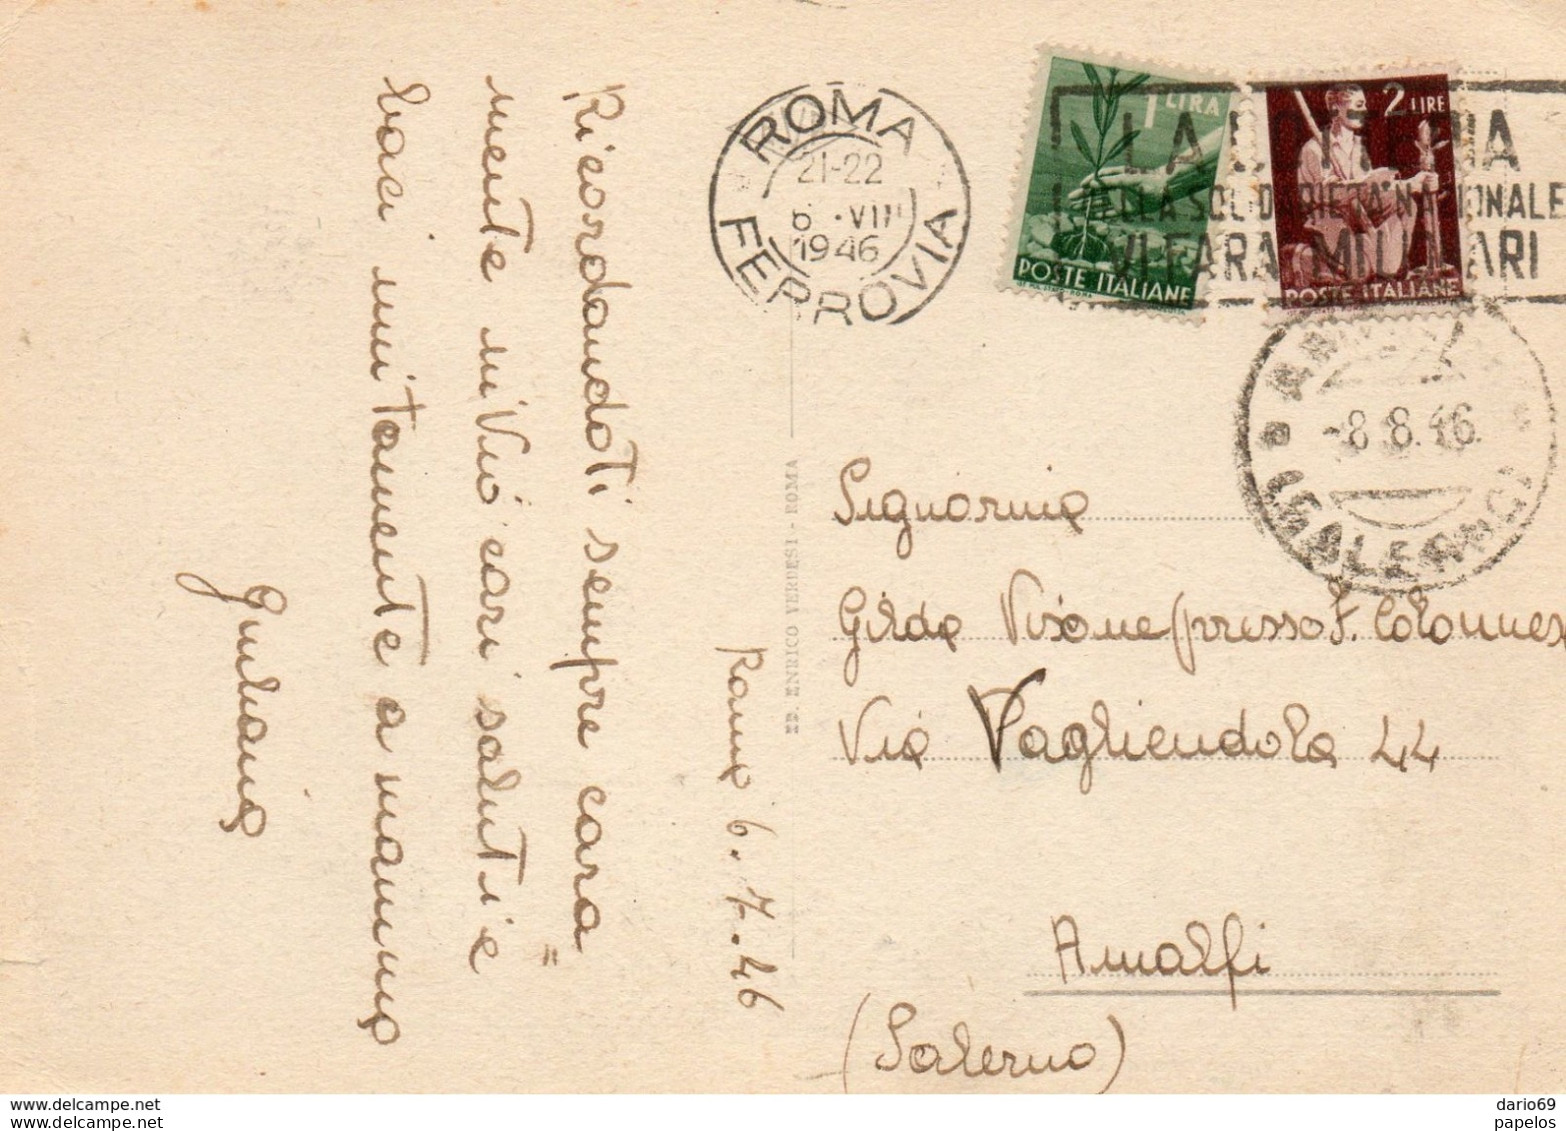 Roma 6.7.46
Ricordandoti sempre cara =
mente inVio cari saluti e
baci unitamente a mamma
Giuliana
ED. ENRICO VERDESI - ROMA
ROMA
21-22
6 · VIII
1946
FERROVIA
1 LIRA
POSTE ITALIANE
2 LIRE
POSTE ITALIANE
LA LOTTERIA
DELLA SOLIDARIETA' NAZIONALE
VI FARA' MILIONARI
-8.8.46.
(SALERNO)
Signorina
Gilda Visone (presso F. Colonnes
Via Vagliendola 44
Amalfi
(Salerno)
www.delcampe.net
www.delcampe.net
dario69
papelos